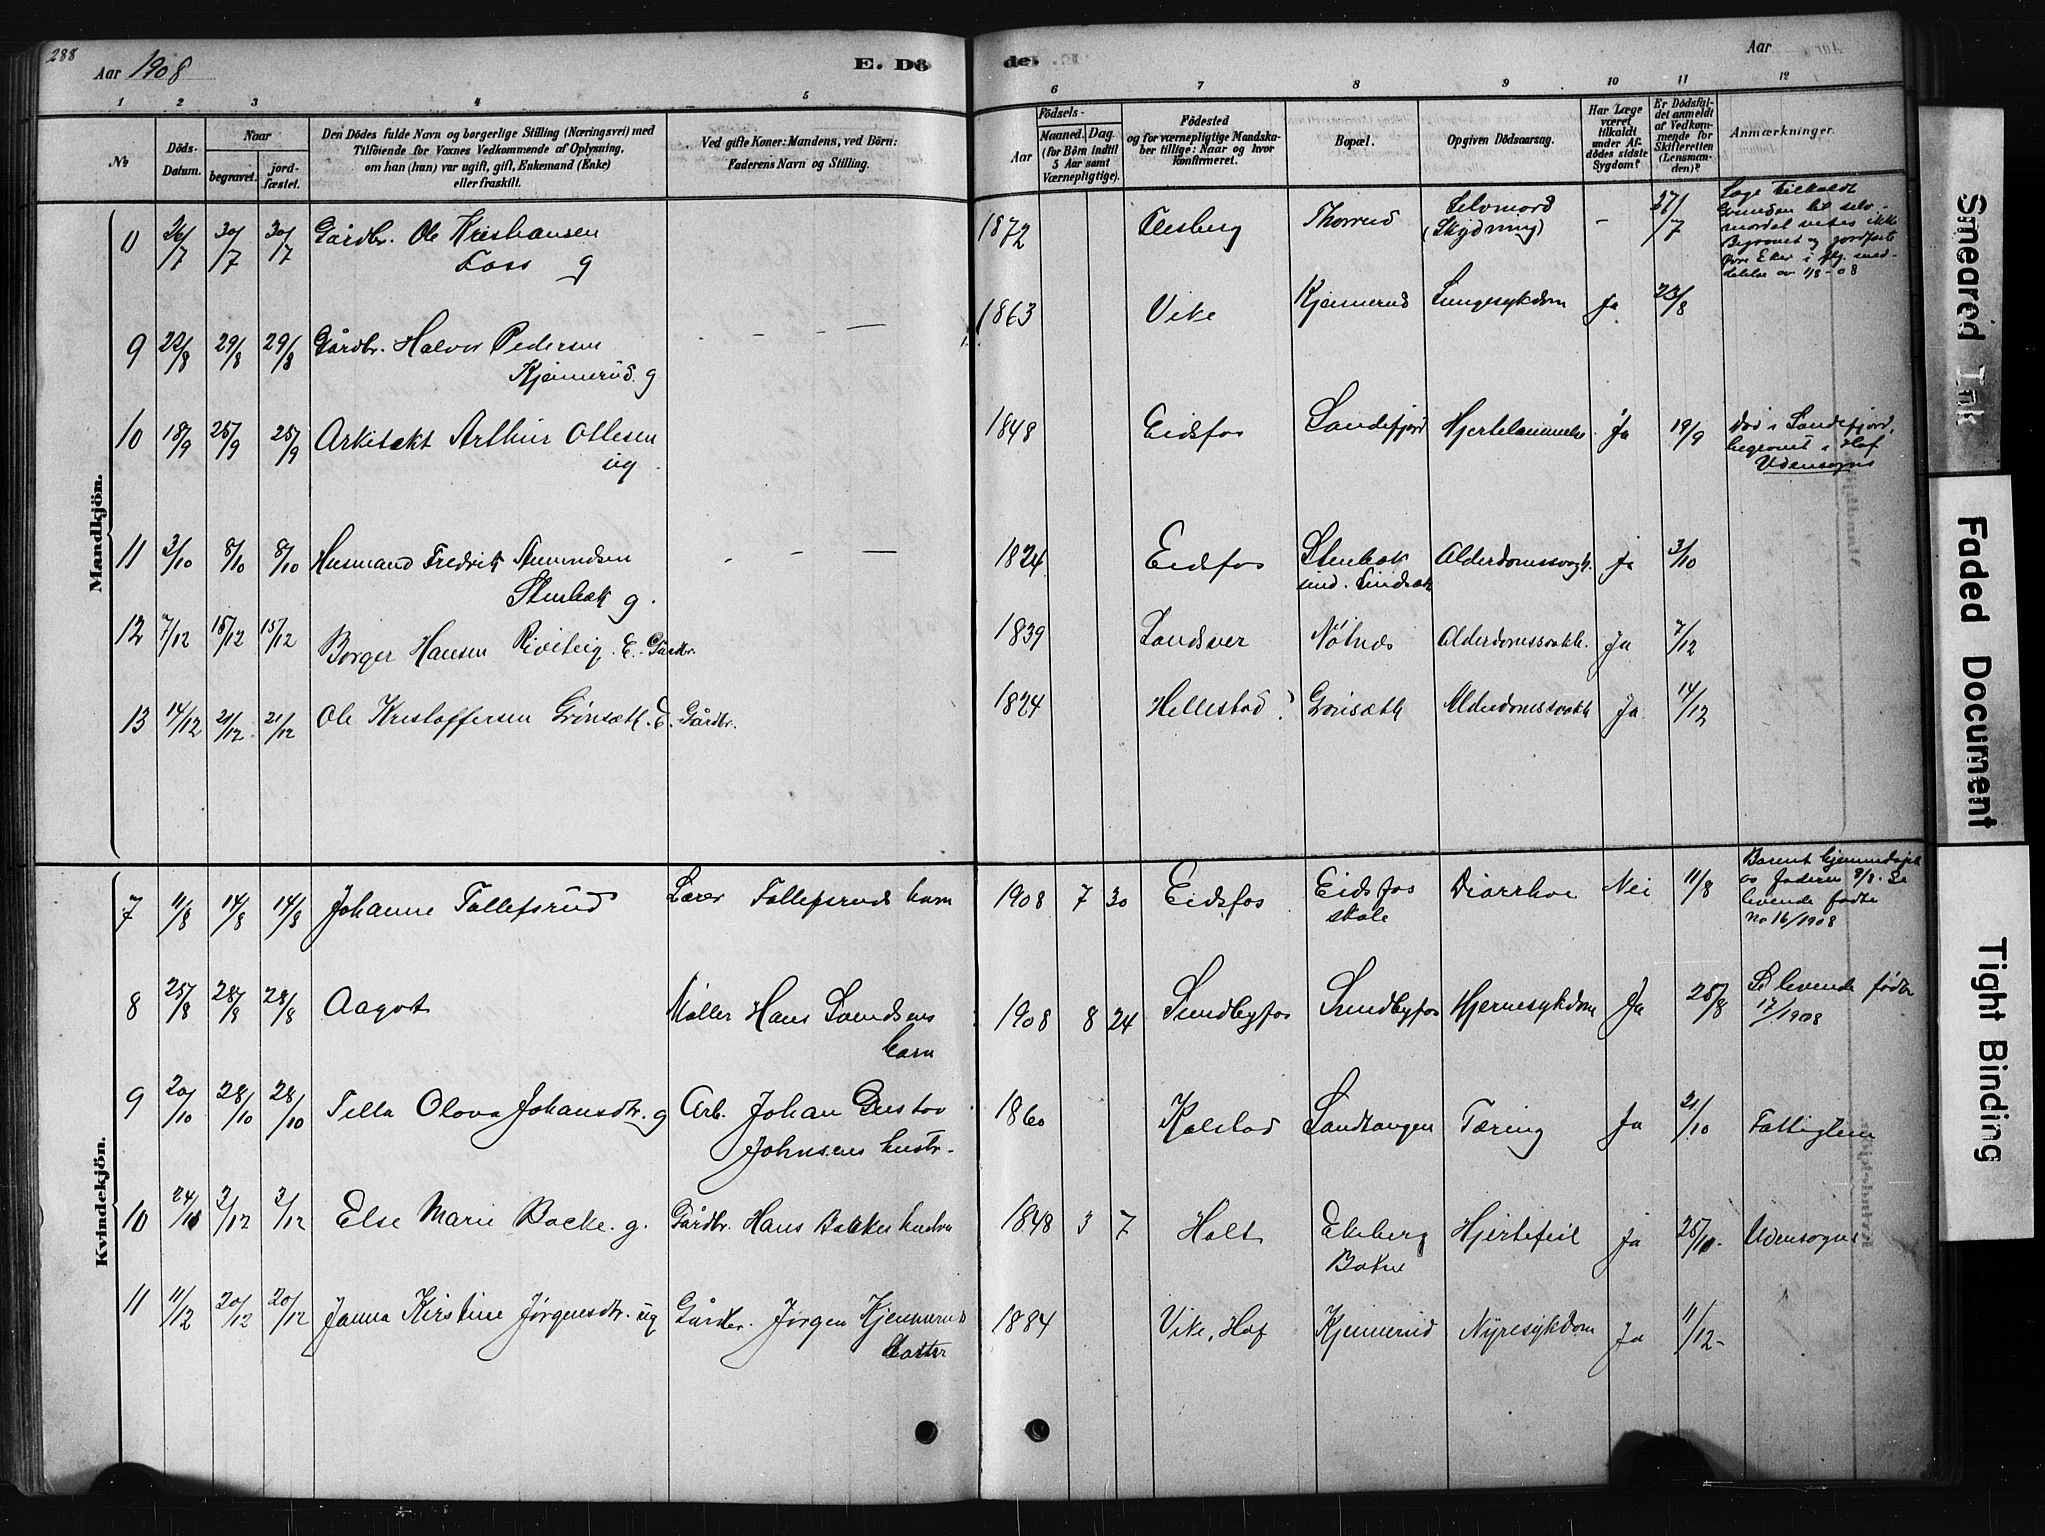 288
Aar 1908
E. Dö
de.
Aar
1 2 3 4 5 6 7 8 9 10 11 12
No
Döds-Datum.
Naar
begravet.
jord-fæstet.
Den Dödes fulde Navn og borgerlige Stilling (Næringsvei) med
Tilföiende for Voxnes Vedkommende af Oplysning,
om han (hun) var ugift, gift, Enkemand (Enke)
eller fraskilt.
Ved gifte Koner: Mandens, ved Börn:
Faderens Navn og Stilling.
Födsels-
Aar
Maaned. Dag.
(for Börn indtil
5 Aar samt
Værnepligtige).
Födested
og for værnepligtige Mandska-
ber tillige: Naar og hvor
konfirmeret.
Bopæl.
Opgiven Dödsaarsag.
Har Læge
været
tilkaldt
under Af-
dödes sidste
Sygdom?
Er Dödsfal-
det anmeldt
af Vedkom-
mende for
Skifteretten
(Lensman-
den)?
Anmærkninger.
Mandkjön.
26/7 30/7 30/7 Gårdbr. Ole Kristiansen
Foss g
1872 Flesberg Thorrud Selvmord
(Skydning) - 27/7
Læge tilkaldt
Grunden til selv-
mordet vides ikke
Begravet og jordfæstet
Øvre Eker i flg. med-
delelse av 1/8-08
9 22/8 29/8 29/8 Gårdbr. Halvor Pedersen
Kjennerud. g
1863 Vike Kjennerud Lungesykdom Ja 23/8
10 18/9 25/9 25/9 Arkitekt Arthur Ottesen
ug
1848 Eidsfos Sandefjord Hjertelammelse Ja 19/9
Død i Sandefjord,
begravet i Hof
Udensogns
11 3/10 8/10 8/10 Husmand Fredrik Amundsen
Stenbæk g.
1824 Eidsfos Stenbæk Alderdomssvagh. Ja 3/10
12 7/12 15/12 15/12 Borger Hansen E. Gårdbr.
1839 Sandsver Alderdomssvakh. Ja 7/12
13 14/12 21/12 21/12 Ole Kristoffersen Grinsæth. E. Gårdbr.
1824 Hillestad? Grinsæth Alderdomssvakh Ja 14/12
Kvindekjön.
7 11/8 14/8 14/8 Johanne Tollefsrud Lærer Tollefsruds barn
1908 7 30 Eidsfos Eidsfos
skole Diarrhoe Nei 11/8
Barnet hjemmedøpt
av faderen 8/8. Se
levende fødte
No 16/1908
8 25/8 28/8 28/8 Aagot Møller Hans barn
1908 8 24 Sundbyfos Sundbyfos Hjernesykdom Ja 25/8
Se levende fødte
17/1908
9 20/10 28/10 28/10 Tilla Olava Johansdtr. g Arb. Johan Gustav
Johnsens hustr.
1860 Kolstad Sandtangen Tæring Ja 21/10 Fattiglem
10 24/11 3/12 3/12 Else Marie Backe. g. Gårdbr. Hans Bakkes hustru
1848 3 7 Holt Ekeberg
Botne Hjertefeil Ja 25/11. Udensogns
11 11/12 20/12 20/12 Janna Kirstine Jørgensdtr. ug Gårdbr. Jørgen Kjennerud
datter
1884 Vike, Hof Kjennerud Nyresykdom Ja 11/12-
Smeared Ink
Faded Document
Tight Binding